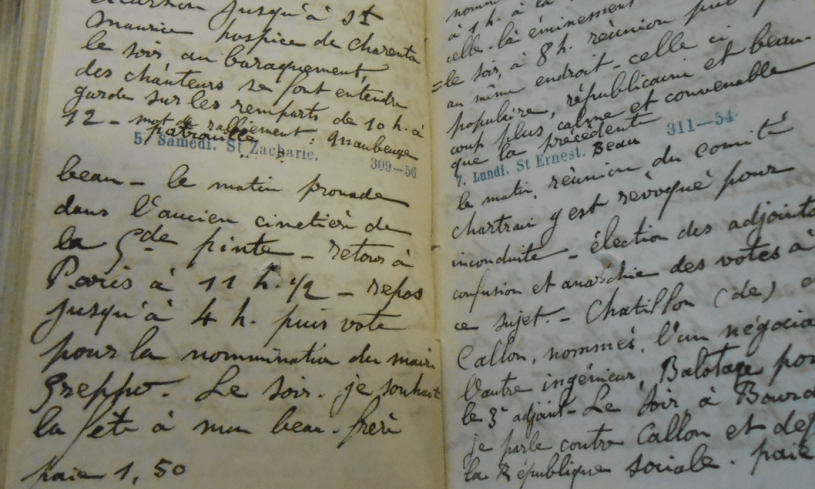 excursion jusqu'à St
Maurice hospice de Charenton
le soir, au baraquement,
des chanteurs se font entendre
garde sur les remparts de 10 h. à
12 - mot de ralliement : Maubeuge
patrouille
5. Samedi. St Zacharie. 309-56
beau - le matin promade
dans l'ancien cimetière de
la Gde pinte - retour à
Paris à 11 h. 1/2 - repos
jusqu'à 4 h. puis vote
pour la nommination du maire
Greppo. Le soir. je souhaite
la fête à mon beau-frère
paie 1,50
à 1 h. à la
celle-là éminement
le soir, à 8 h. réunion
au même endroit - celle ci
populaire, républicaine et beau-
coup plus calme et convenable
que la précédente
7. Lundi. St Ernest. Beau 311-54
le matin, réunion du Comité
Chartrain y est révoqué pour
inconduite - élection des adjoints
confusion et anarchie des votes à
ce sujet. - Chatillon (de) e
Callon, nommés. l'un négocia
l'autre ingénieur, Balotage pou
le 3e adjoint - Le soir, à
je parle contre Callon et def
la République sociale. paie